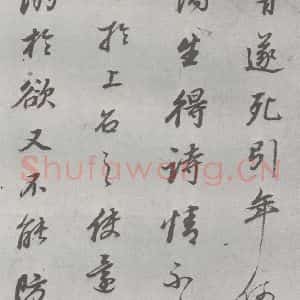 遂死引年
生得詩情不
於上名之使還
於欲又不能防
Shufawang.CN